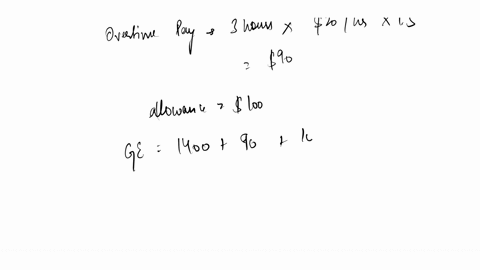 Overtime Pay → 3 hours × $20 / hrs × 1.5
= $90
allowance → $100
GE = 1400 + 90 + 1